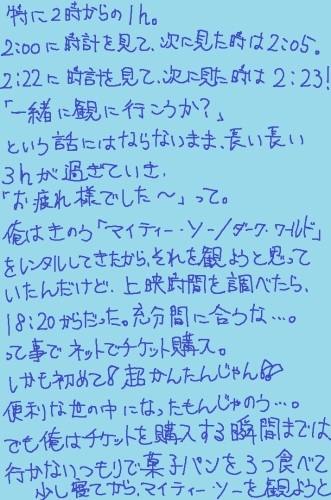 特に2時からの1h。
2:00に時計を見て、次に見た時は2:05。
2:22に時計を見て、次に見た時は2:23!
「一緒に観に行こうか?」
という話にはならないまま、長い長い
3hが過ぎていき、
「お疲れ様でした〜」って。
俺はきのう「マイティー・ソー/ダーク・ワールド」
をレンタルしてきたから、それを観ようと思って
いたんだけど、上映時間を調べたら、
18:20からだった。充分間に合うな…。
って事でネットでチケット購入。
しかも初めて8超かんたんじゃん
便利な世の中になったもんじゃのう…。
でも俺はチケットを購入する瞬間までは
行かないつもりで菓子パンを3つ食べて
少し寝てから、マイティー・ソーを観ようと